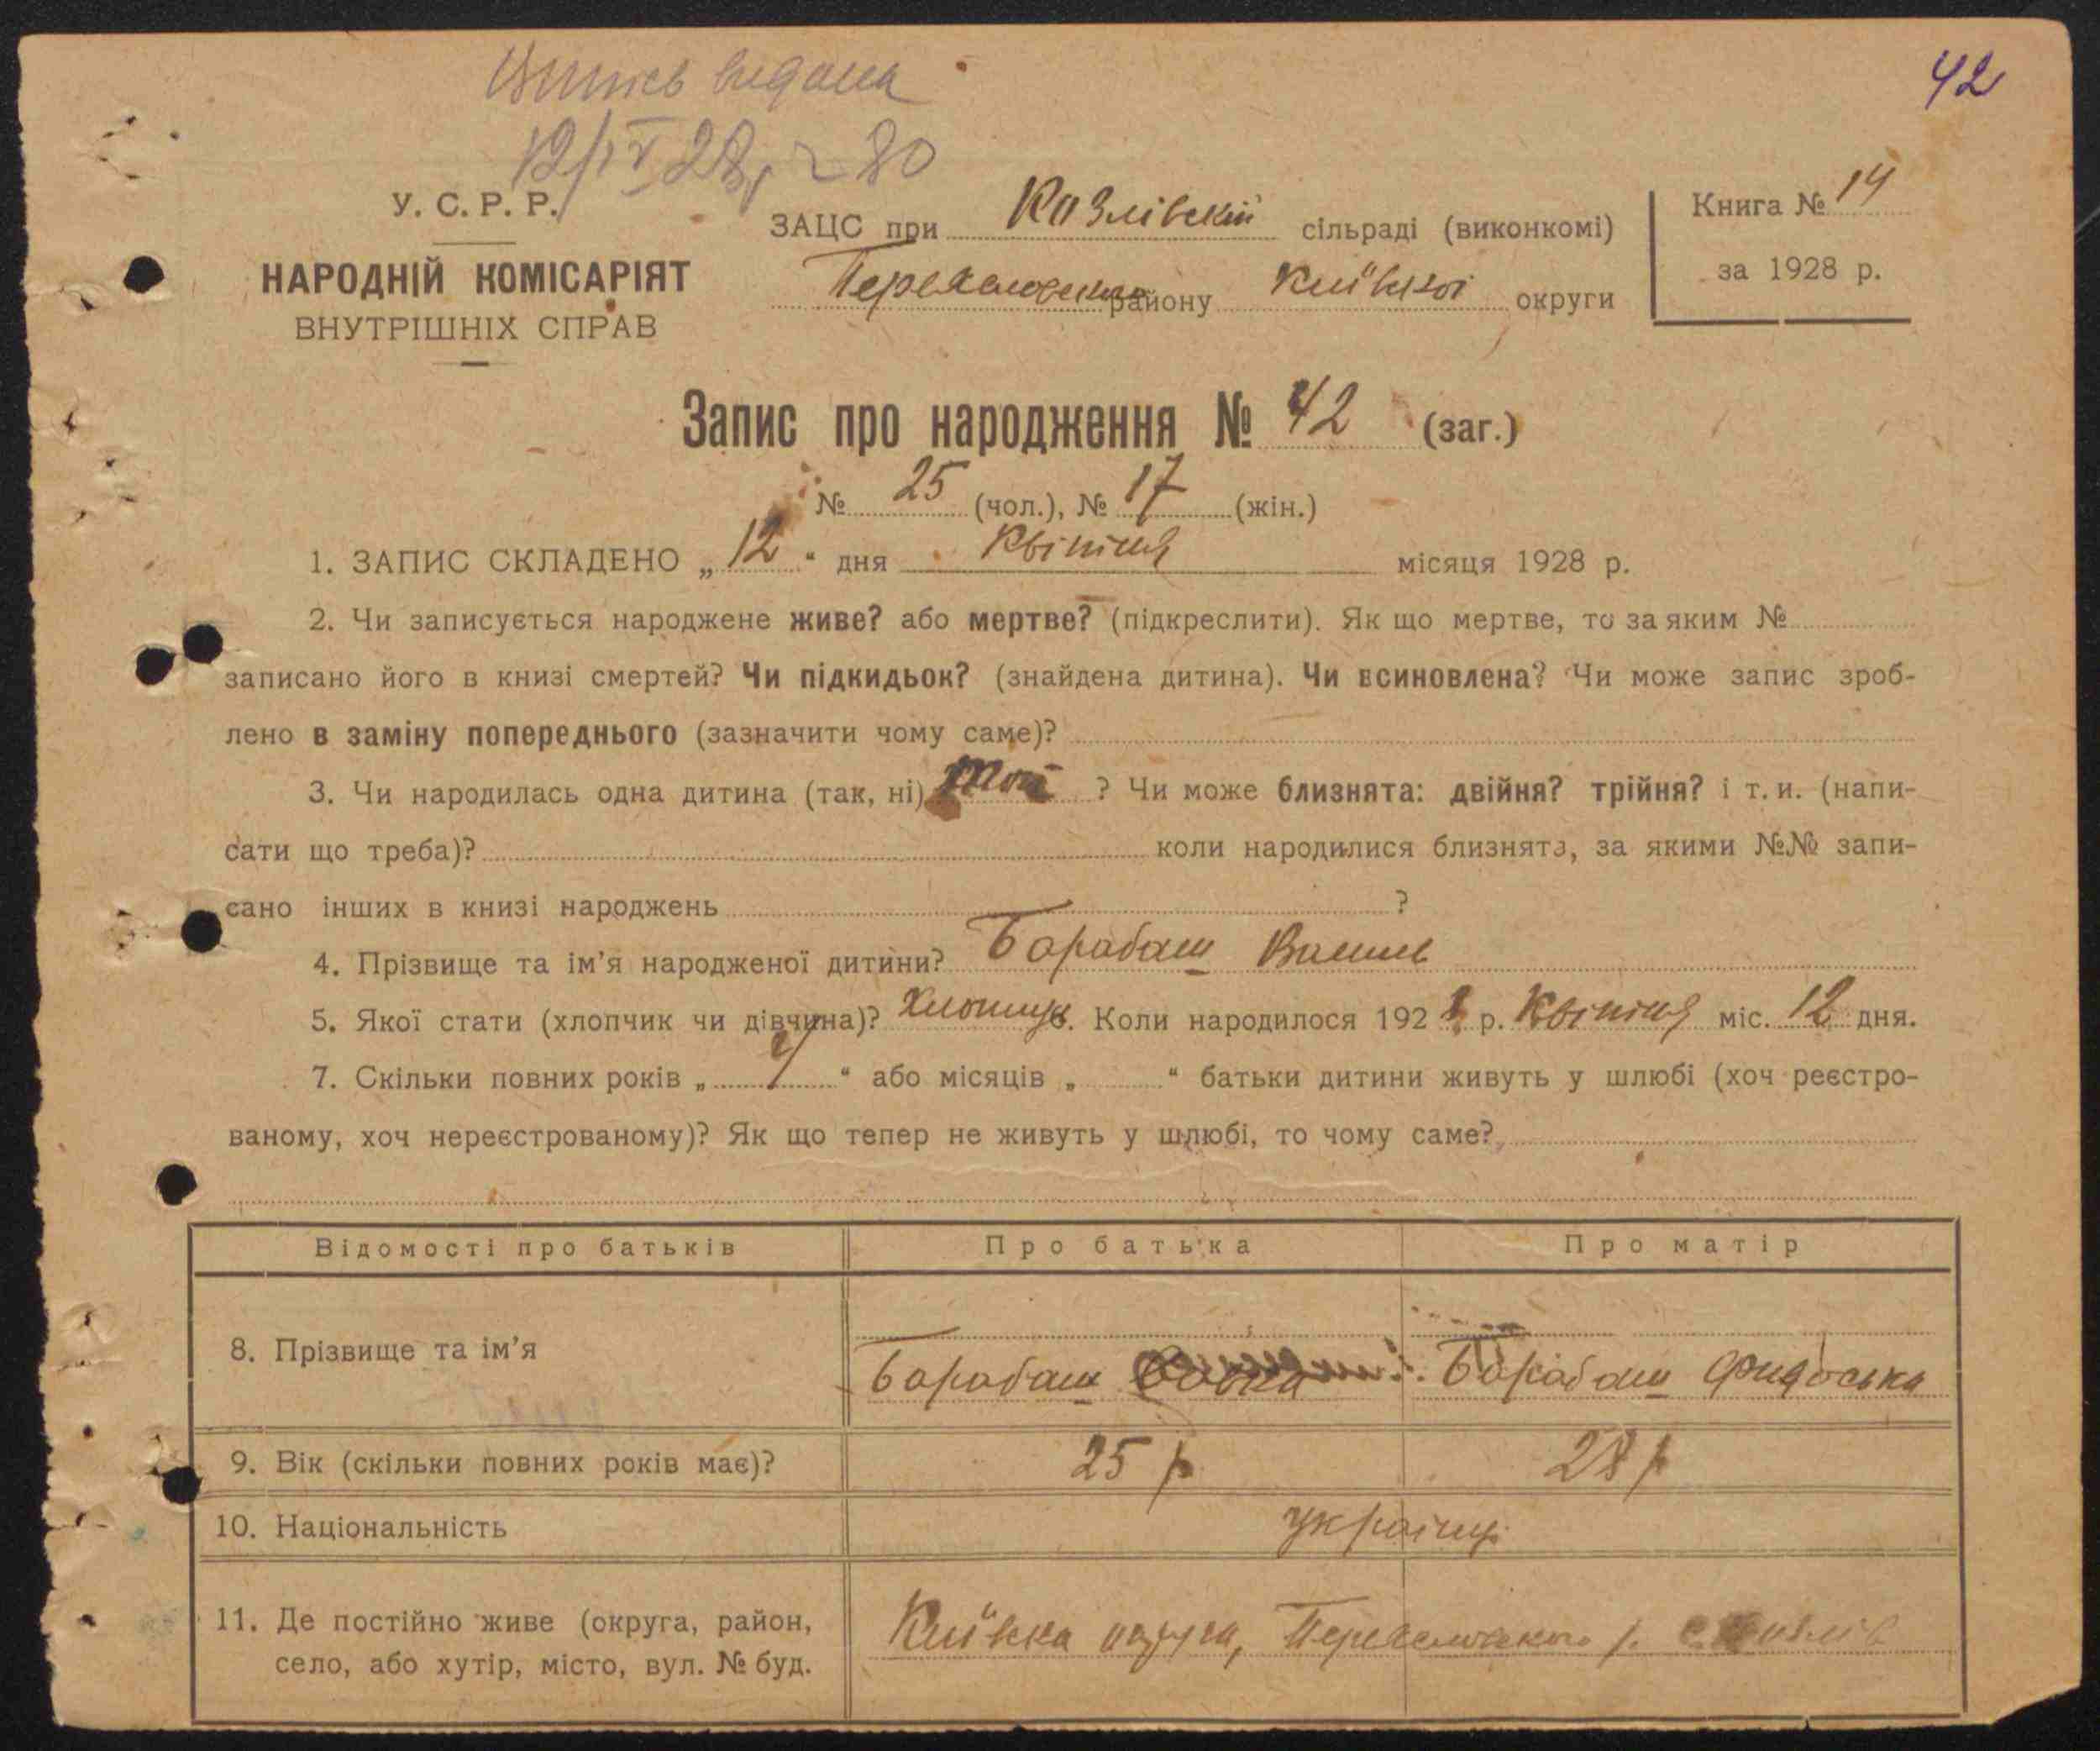 42
Витяг видана
12/IV 28 р № 80
У. С. Р. Р.
НАРОДНІЙ КОМІСАРІЯТ
ВНУТРІШНІХ СПРАВ
ЗАЦС при Козлівській сільраді (виконкомі)
Переяславського району Київської округи
Книга № 14
за 1928 р.
Запис про народження № 42 (заг.)
№ 25 (чол.), № 17 (жін.)
1. ЗАПИС СКЛАДЕНО „ 12 “ дня Квітня місяця 1928 р.
2. Чи записується народжене живе? або мертве? (підкреслити). Як що мертве, то за яким №
записано його в книзі смертей? Чи підкидьок? (знайдена дитина). Чи всиновлена? Чи може запис зроб-
лено в заміну попереднього (зазначити чому саме)?
3. Чи народилась одна дитина (так, ні) так ? Чи може близнята: двійня? трійня? і т. и. (напи-
сати що треба)? коли народилися близнята, за якими №№ запи-
сано інших в книзі народжень ?
4. Прізвище та ім’я народженої дитини? Барабаш Василь
5. Якої стати (хлопчик чи дівчина)? Хлопчик 6. Коли народилося 1928 р. Квітня міс. 12 дня.
7. Скільки повних років „ 4 “ або місяців „ “ батьки дитини живуть у шлюбі (хоч реєстро-
ваному, хоч нереєстрованому)? Як що тепер не живуть у шлюбі, то чому саме?
Відомості про батьків Про батька Про матір
8. Прізвище та ім’я Барабаш Барабаш Фидоська
9. Вік (скільки повних років має)? 25 р 28 р
10. Національність українці
11. Де постійно живе (округа, район,
село, або хутір, місто, вул. № буд.
Київська округа, Переяславського р. с. Козлів